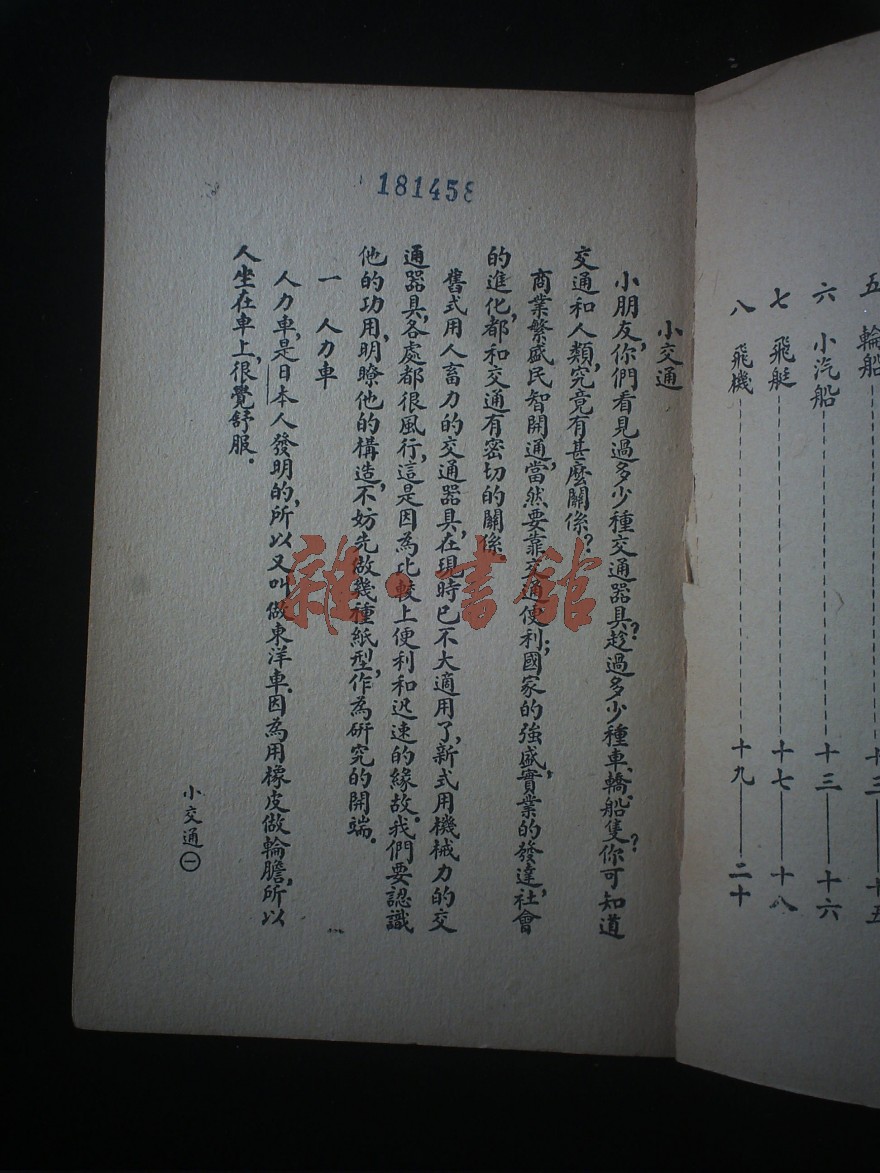 五 輪船 十三 十五
六 小汽船 十三 十六
七 飛艇 十七 十八
八 飛機 十九 二十
181458
小交通
小朋友,你們看見過多少種交通器具?趁過多少種車、轎、船隻?你可知道
交通和人類,究竟有甚麼關係?
商業繁盛,民智開通,當然要靠交通便利;國家的強盛,實業的發達,社會
的進化,都和交通有密切的關係。
舊式用人畜力的交通器具,在現時已不大適用了,新式用機械力的交
通器具,各處都很風行,這是因為比較上便利和迅速的緣故。我們要認識
他的功用,明瞭他的構造,不妨先做幾種紙型,作為研究的開端。
一 人力車
人力車,是日本人發明的,所以又叫做東洋車。因為用橡皮做輪膽,所以
人坐在車上,很覺舒服。
小交通 ㊀
雜·書館